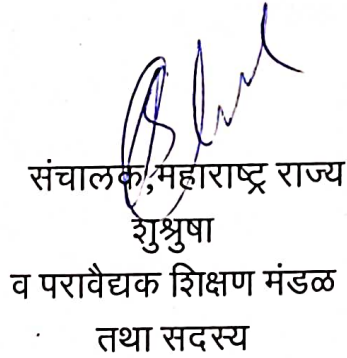 संचालक,महाराष्ट्र राज्य
शुश्रुषा
व परावैद्यक शिक्षण मंडळ
तथा सदस्य